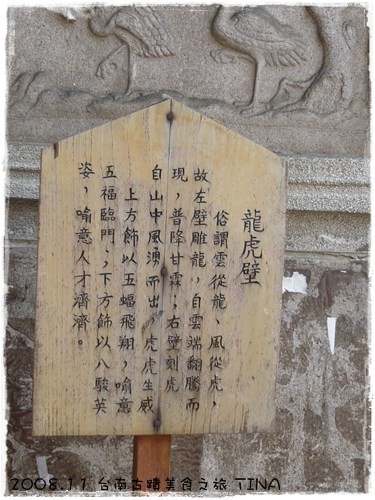 龍虎壁
俗謂雲從龍、風從虎，
故左壁雕龍，自雲端翻騰而
現，普降甘霖；右壁刻虎
自山中風湧而出，虎虎生威
上方飾以五蝠飛翔，喻意
五福臨門，；下方飾以八駿英
姿，喻意人才濟濟。
2008.11 台南古蹟美食之旅 TINA